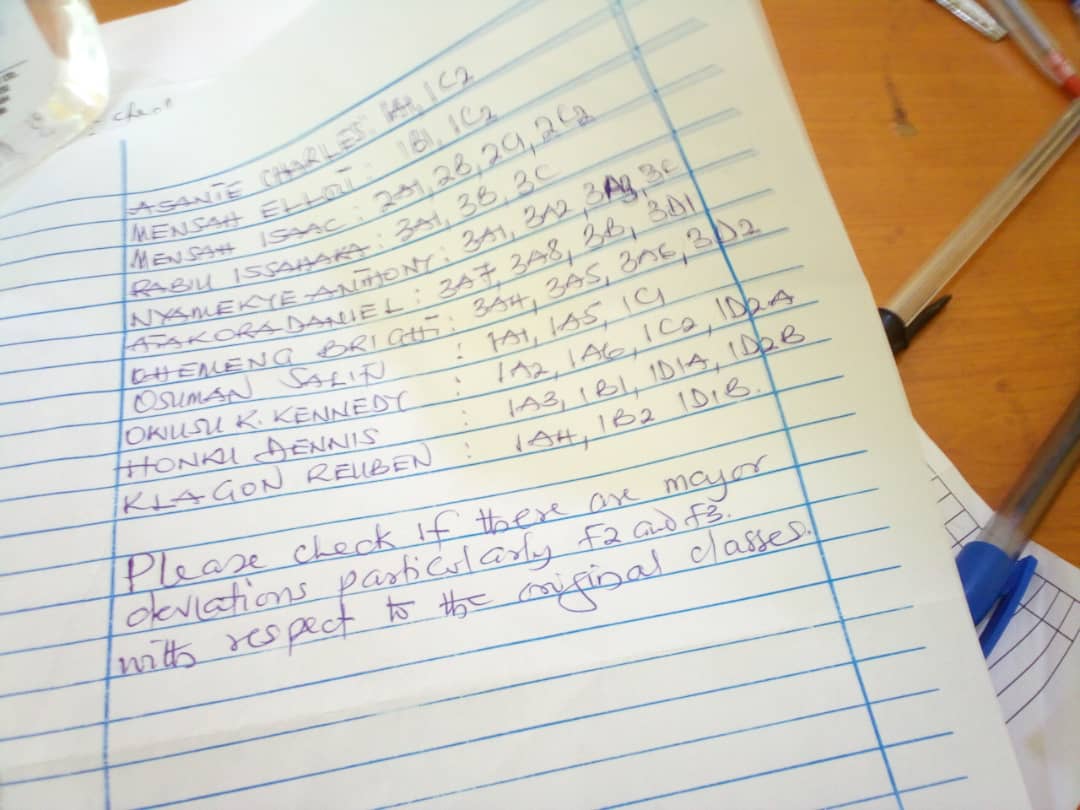 ASANTE CHARLES: 1A1, 1C2
MENSAH ELLIOT: 1B1, 1C2
MENSAH ISAAC: 2A1, 2B, 2C1, 2C2
RABIU ISSAHAKA: 3A1, 3B, 3C
NYAMEKYE ANTHONY: 3A1, 3A2, 3A3, 3C
ATAKORA DANIEL: 3A7, 3A8, 3B, 3D1
DHEMENG BRIGHT: 3A4, 3A5, 3A6, 3D2
OSUMAN SALIFU : 1A1, 1A5, 1C1
OWUSU K. KENNEDY : 1A2, 1A6, 1C2, 1D2A
HONKU DENNIS : 1A3, 1B1, 1D1A, 1D2B
KLAGON REUBEN : 1A4, 1B2 1D1B.
Please check if there are mayor
deviations particularly F2 and F3.
with respect to the original classes.